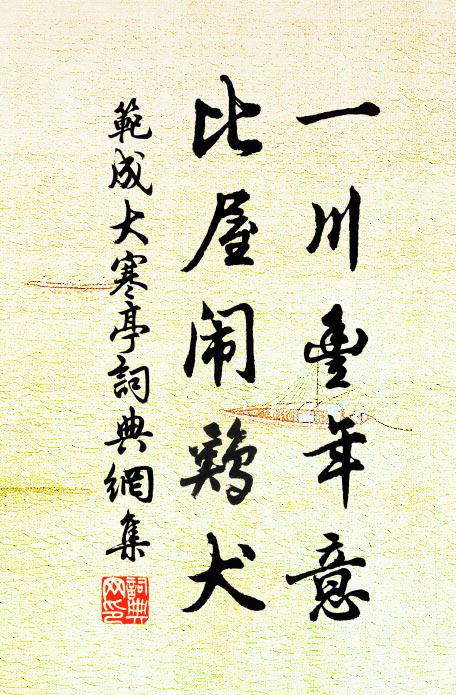 一川豐年意
比屋闹鷄犬
範成大寒亭詞典網集
詞典
文印